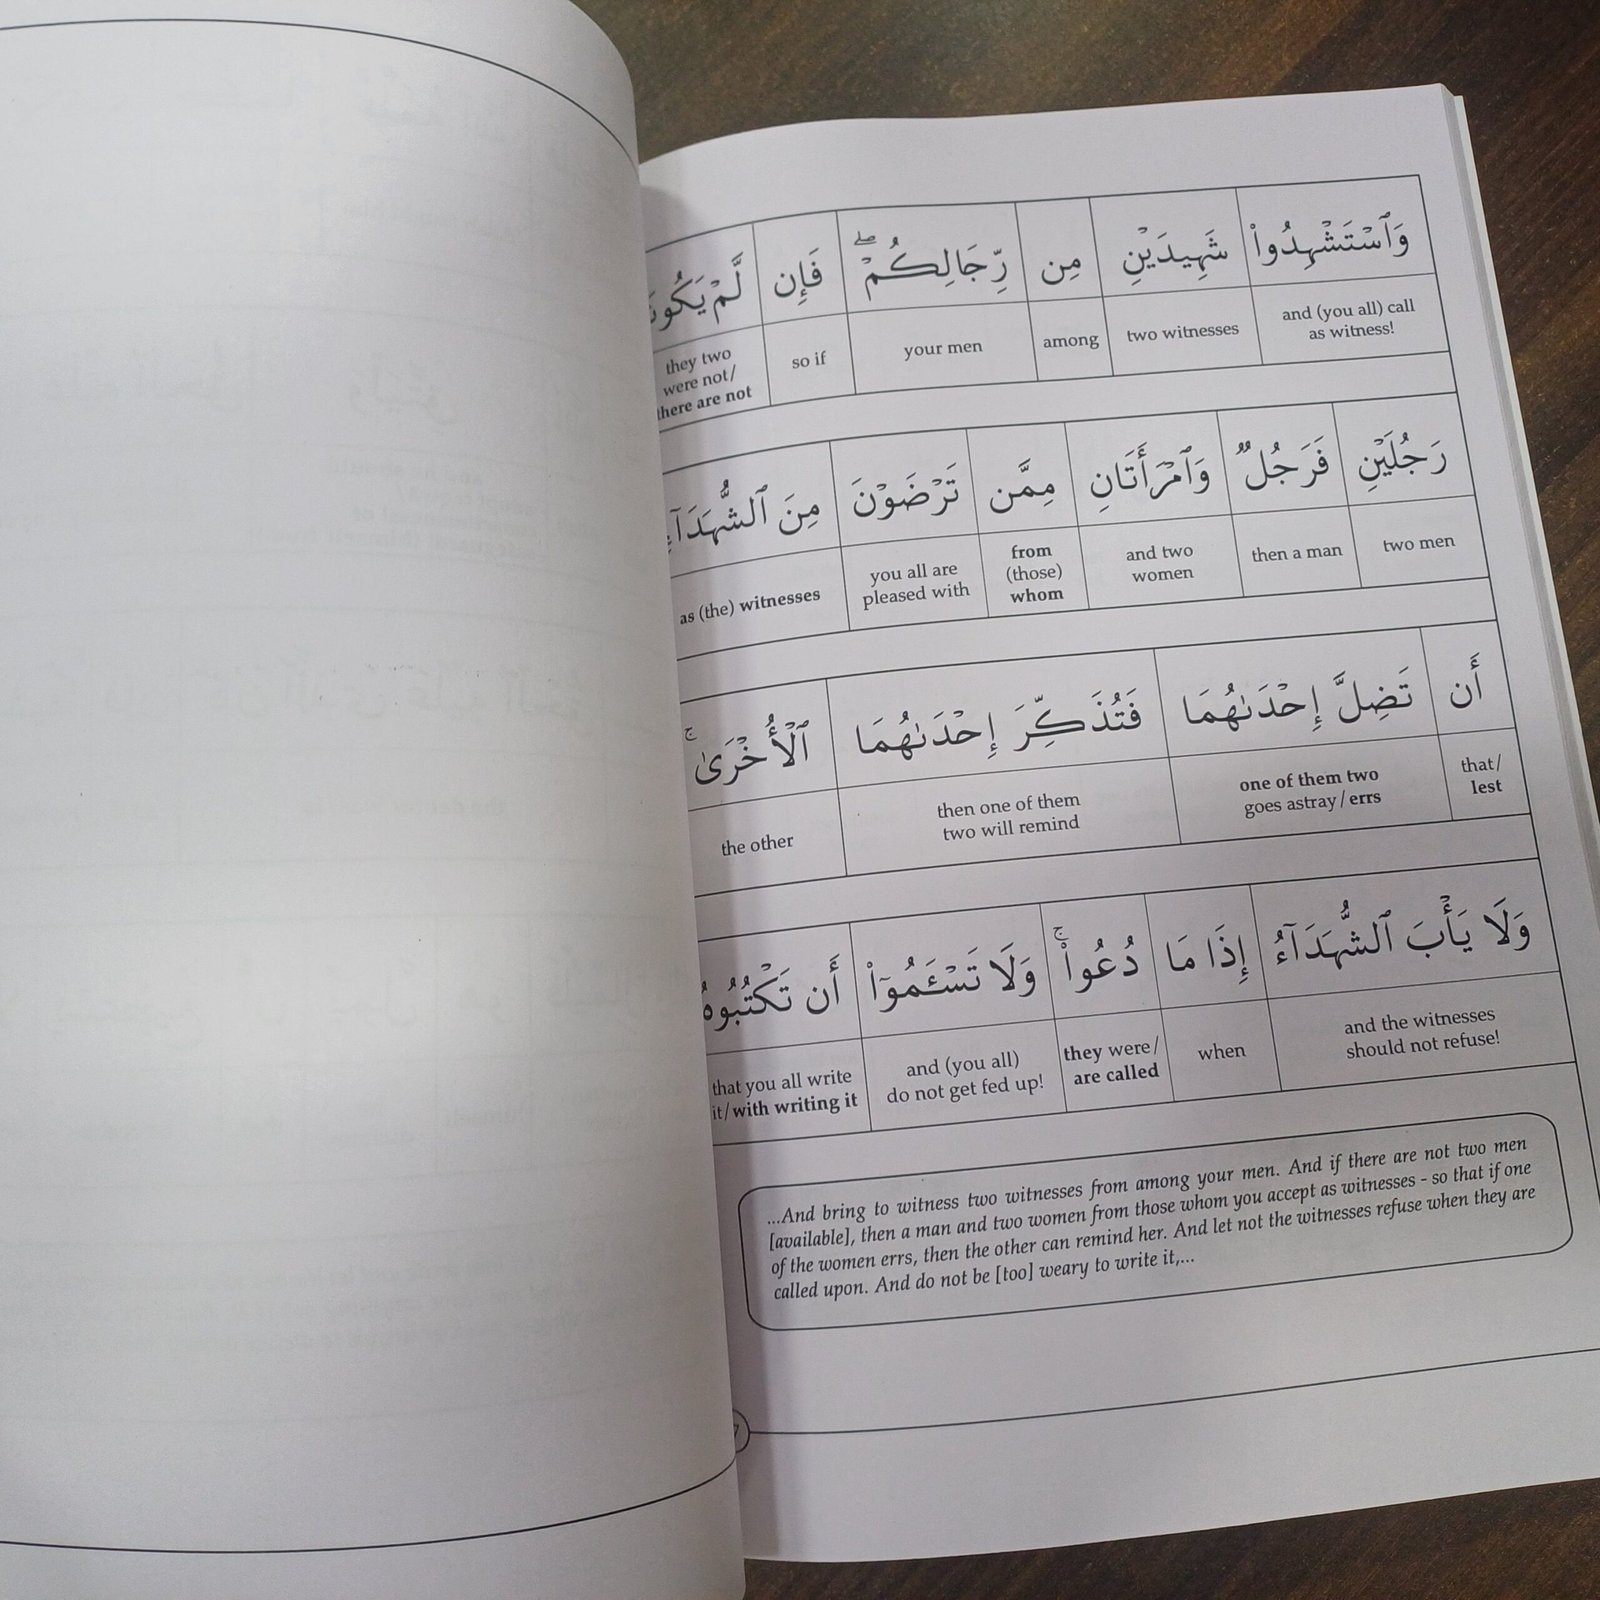 وَٱسْتَشْهِدُوا۟ شَهِيدَيْنِ مِن رِّجَالِكُمْ ۖ فَإِن لَّمْ يَكُونَا
and (you all) call as witness! two witnesses among your men so if they two were not/ there are not
رَجُلَيْنِ فَرَجُلٌ وَٱمْرَأَتَانِ مِمَّن تَرْضَوْنَ مِنَ ٱلشُّهَدَآءِ
two men then a man and two women from (those) whom you all are pleased with as (the) witnesses
أَن تَضِلَّ إِحْدَىٰهُمَا فَتُذَكِّرَ إِحْدَىٰهُمَا ٱلْأُخْرَىٰ ۚ
that/ lest one of them two goes astray/errs then one of them two will remind the other
وَلَا يَأْبَ ٱلشُّهَدَآءُ إِذَا مَا دُعُوا۟ ۚ وَلَا تَسْـَٔمُوٓا۟ أَن تَكْتُبُوهُ
and the witnesses should not refuse! when they were/ are called and (you all) do not get fed up! that you all write it/with writing it
...And bring to witness two witnesses from among your men. And if there are not two men
[available], then a man and two women from those whom you accept as witnesses - so that if one
of the women errs, then the other can remind her. And let not the witnesses refuse when they are
called upon. And do not be [too] weary to write it,...